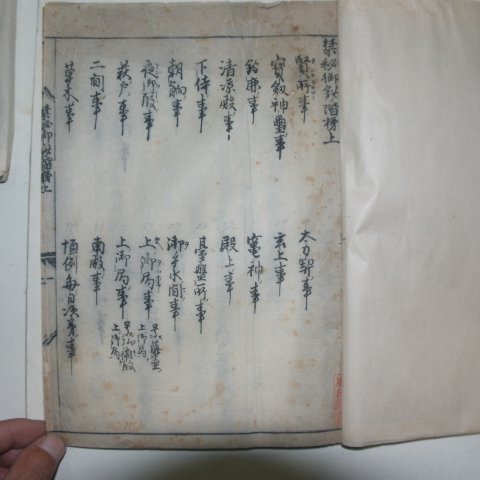 禁秘御鈔階梯上
賢所事
大刀契事
寳釼神璽事
玄上事
鈴鹿事
竈神事
清凉殿事
殿上事
下侍事
臺盤所事
朝餉事
御手水間事
夜御殿事
上御局事
上御局
萩戸事
上御局事
上御局
二間事
南殿事
草木事
恒例毎日次第事